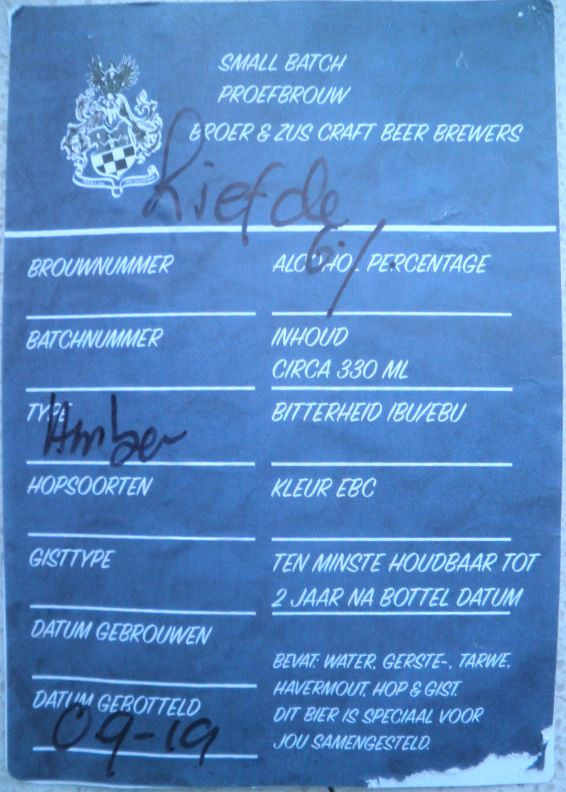 SMALL BATCH
PROEFBROUW
BROER & ZUS CRAFT BEER BREWERS
Liefde
BROUWNUMMER
ALCOHOL PERCENTAGE
6%
BATCHNUMMER
INHOUD
CIRCA 330 ML
TYPE
Amber
BITTERHEID IBU/EBU
HOPSOORTEN
KLEUR EBC
GISTTYPE
TEN MINSTE HOUDBAAR TOT
2 JAAR NA BOTTEL DATUM
DATUM GEBROUWEN
DATUM GEBOTTELD
09-19
BEVAT: WATER, GERSTE-, TARWE,
HAVERMOUT, HOP & GIST.
DIT BIER IS SPECIAAL VOOR
JOU SAMENGESTELD.